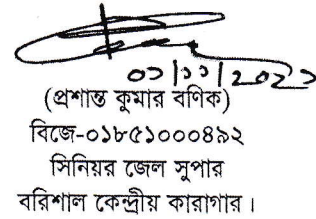 (প্রশান্ত কুমার বণিক)
বিজে-০১৮৫১০০০৪৯২
সিনিয়র জেল সুপার
বরিশাল কেন্দ্রীয় কারাগার।